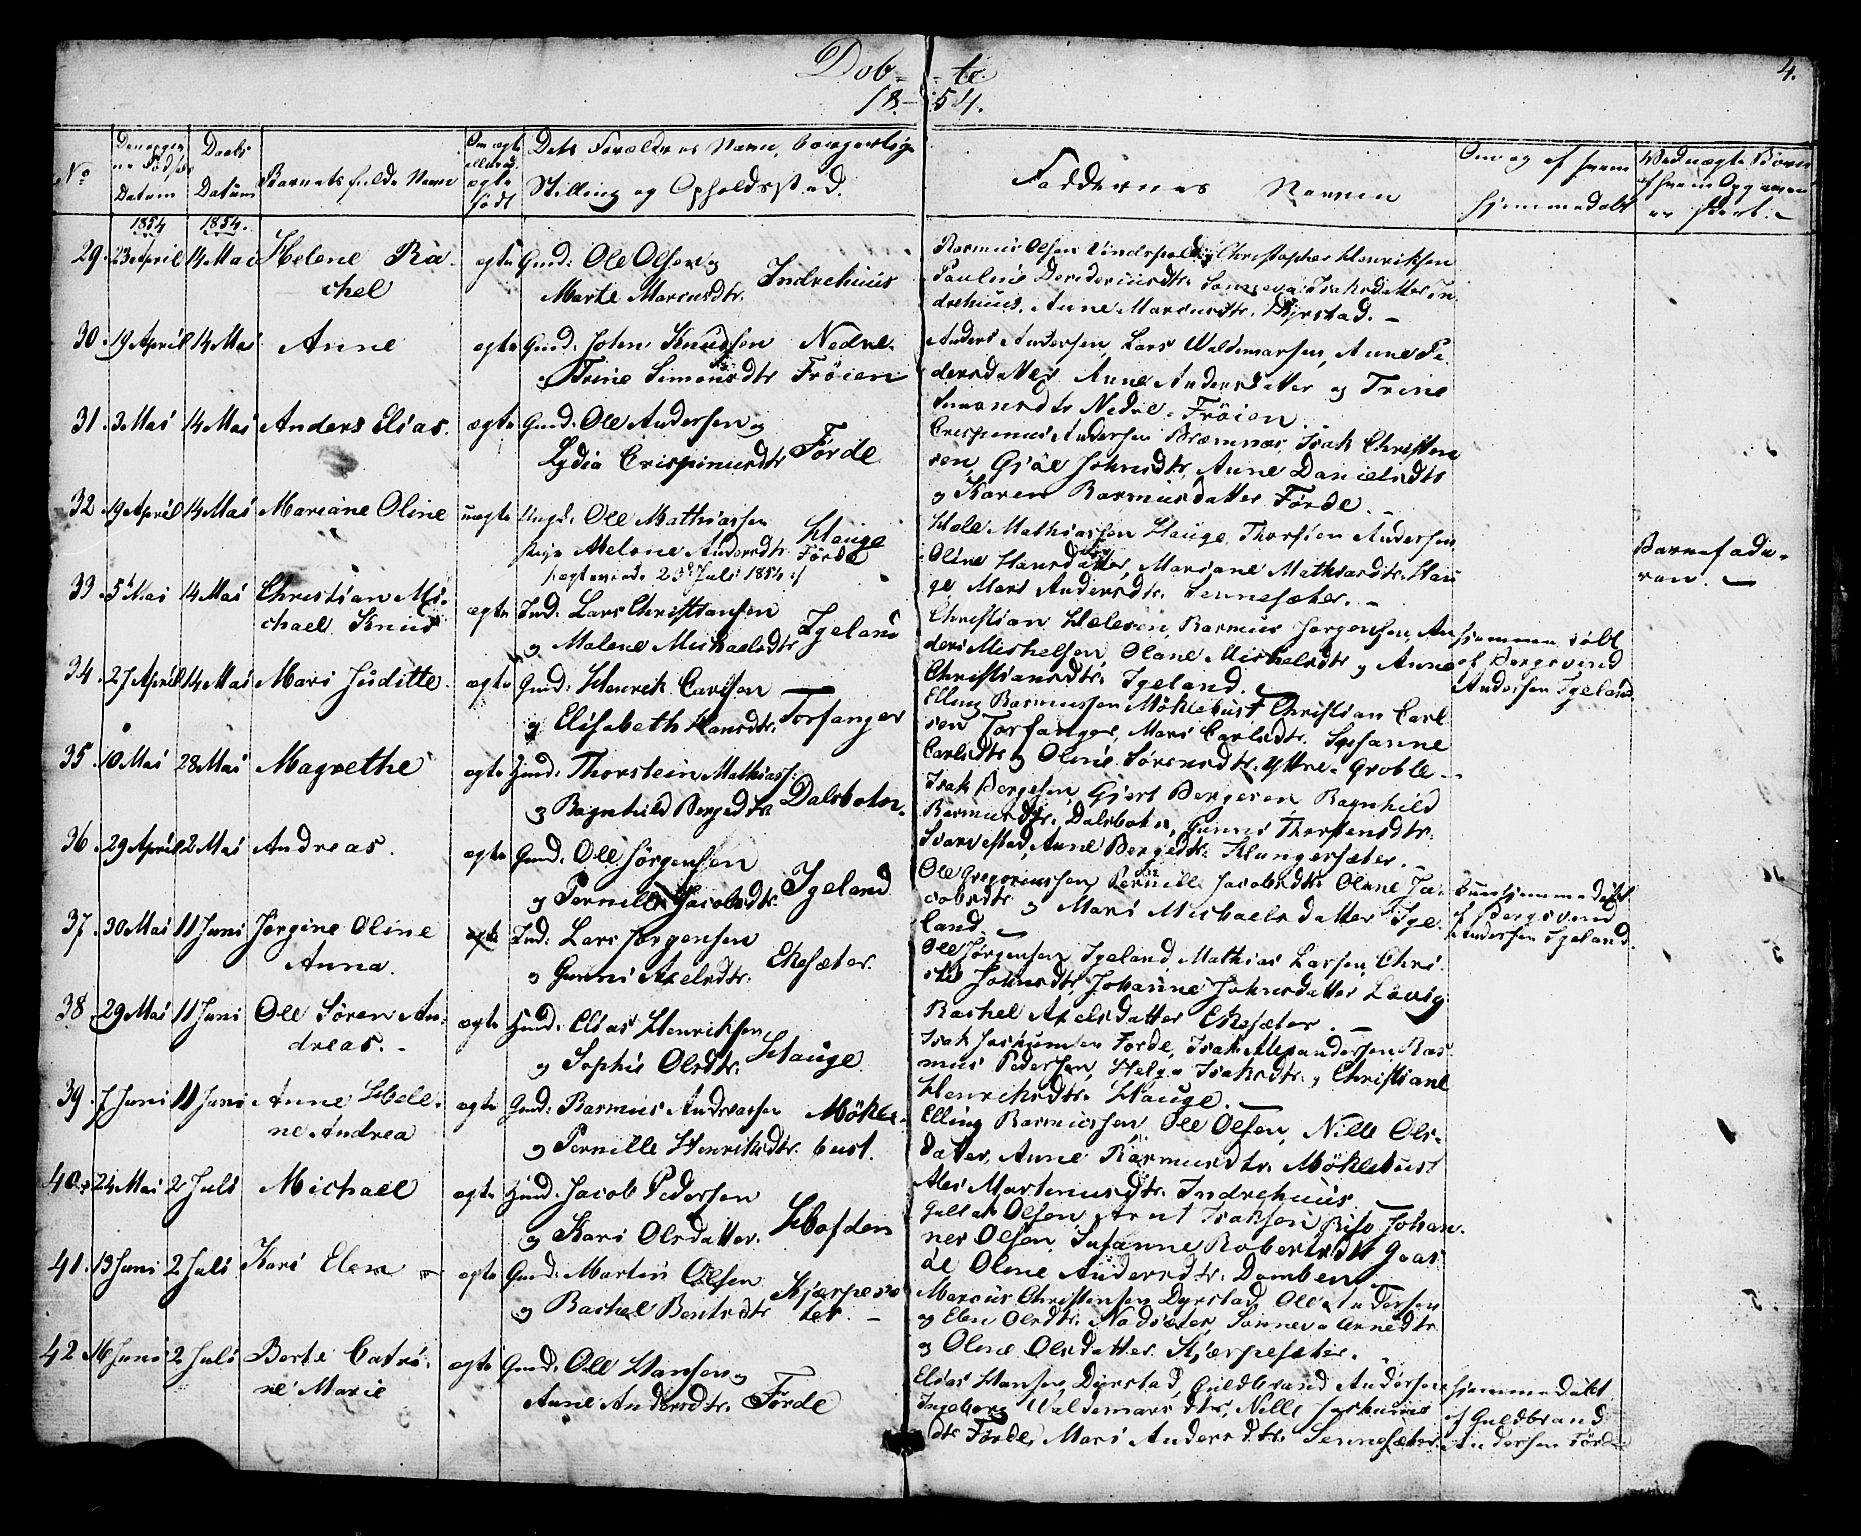 Døb- -te. 4.
18- 54.
No
Datum
Daabs Datum
Barnets fulde Navn
Om ægte eller uægte født
Stilling og Opholdsstad.
Faddernes Navne
Om og af hvem hjemmedøbt
1854 1854.
29. 23 April 14 Mai Helene Ra-
chel
ægte Gmd: Ole Olsen og
Marte Marcusdtr. Indrehuus
Rasmus Olsen Christopher Henriksen
Pauline Isaksdatter In
drehuus. Anne Marcusdtr. Dyrstad. -
30. 19 April 14 Mai Anne
ægte Gmd: John Knudsen Nedre
og Trine Simonsdtr Frøien
Anders Andersen, Lars Waldemarsen, Anne Pe
dersdatter Anne Andersdatter og Trine
Simonsdtr Nedre-Frøien.
31. 3 Mai 14 Mai Anders Elias.
ægte Gmd: Ole Andersen og
Lydia Crispinusdtr Førde
Crispinus Andersen Bræmnæs, Isak Christen
sen, Gjøe Johnsdtr, Anne Danielsdtr
og Karen Rasmusdatter Førde. -
32. 19 April 14 Mai Mariane Oline
uægte Ungk: Ole Mathiassen Hauge
Pige Malene Andersdtr. Førde
23de Juli 1854
Mathiassen Hauge Thorsten Andersen
Oline Hansdatter, Mariane Mathiasdtr. Hau
ge Mari Andersdtr. Sennesæter. -
Barnefade-
ren. -
33. 5te Mai 14 Mai Christian Mi-
chael Knud
ægte Ind: Lars Christiansen
og Malene Michaelsdtr Igeland
Christian Rasmus Jørgensen, An
ders Michelsen, Oline Michelsdtr og Anne
Christiansdtr. Igeland.
hjemmedøbt
af Bergsvend
Andersen Igeland
34. 27 April 14 Mai Mari Juditte.
ægte Gmd: Henrik Carlsen
og Elisabeth Hansdtr. Torfanger
Elling Rasmussen Møklebust Christian Carl
sen Torfanger, Mari Carlsdtr. Susanne
Carlsdtr og Oline Sørensdtr. Yttre-Groble-
35. 10 Mai 28 Mai Magrethe
ægte Gmd: Thorstein Mathiass:
og Ragnhild Bergedtr. Dalsbotn.
Isak Bergesen, Gjert Bergesen Ragnhild
Rasmusdtr. Dalsbotn, Gunni Thorstensdtr.
Svarvestad, Anne Bergedtr. Klungersæter. -
36. 29 April 2 Mai Andreas.
ægte Gmd: Ole Jørgensen
og Pernille Jacobsdtr. Igeland
Ole Gregoriussen Pernille Jacobsdtr. Oline Ja-
cobsdtr og Mari Michaelsdatter Ige-
land.
hjemmedøbt
af Bergsvend
Andersen Igeland.
37. 30 Mai 11 Juni Jørgine Oline
Anna.
ægte Ind: Lars Jørgensen
og Gunni Axelsdtr. Ekesæter.
Ole Jørgensen Igeland, Mathias Larsen, Chri-
stie Johnsdtr, Johanne Johnsdatter Løvig
Rachel Axelsdatter Ekesæter. -
38. 29 Mai 11 Juni Ole Søren An-
dreas. -
ægte Hmd: Elias Henriksen
og Sophie Olsdtr. Hauge.
Isak Førde, Isak Alexandersen, Ras
mus Pedersen, Helga Isaksdtr. og Christiane
Henriksdtr. Hauge.
39. 7 Juni 11 Juni Anne Hele-
ne Andrea
ægte Gmd: Rasmus Andreassen Møkle-
og Pernille Henriksdtr. bust.
Elling Rasmussen, Ole Olsen, Nille Ols-
datter, Anne Rasmusdtr. Møklebust
Mortenusdtr. Indrehuus
40. 24 Mai 2 Juli Michael
ægte Hmd: Jacob Pedersen
og Kari Olsdatter. Hofden
Olsen, Arnt Isaksen, Johan
nes Olsen, Susanne Robertsdtr Gaas
øe Oline Andersdtr. Domben
41. 13 Juni 2 Juli Kari Elen -
ægte Gmd: Martin Olsen Kjærpesæ
og Rachel Bentsdtr ter. -
Marcus Christensen Dyrstad, Ole Andersen
og Elen Olsdtr. Sonneva Arnedtr
og Oline Olsdatter Kjærpesæter.
42. 16 Juni 2 Juli Berte Catri-
ne Marie
ægte Gmd: Ole Hansen og
Anne Andersdtr. Førde
Elias Hansen, Dyrstad, Guldbrand Andersen
Ingeborg Waldemarsdtr, Nille
dtr Førde, Mari Andersdtr. Sennesæter.
hjemmedøbt
af Guldbrand
Andersen Førde